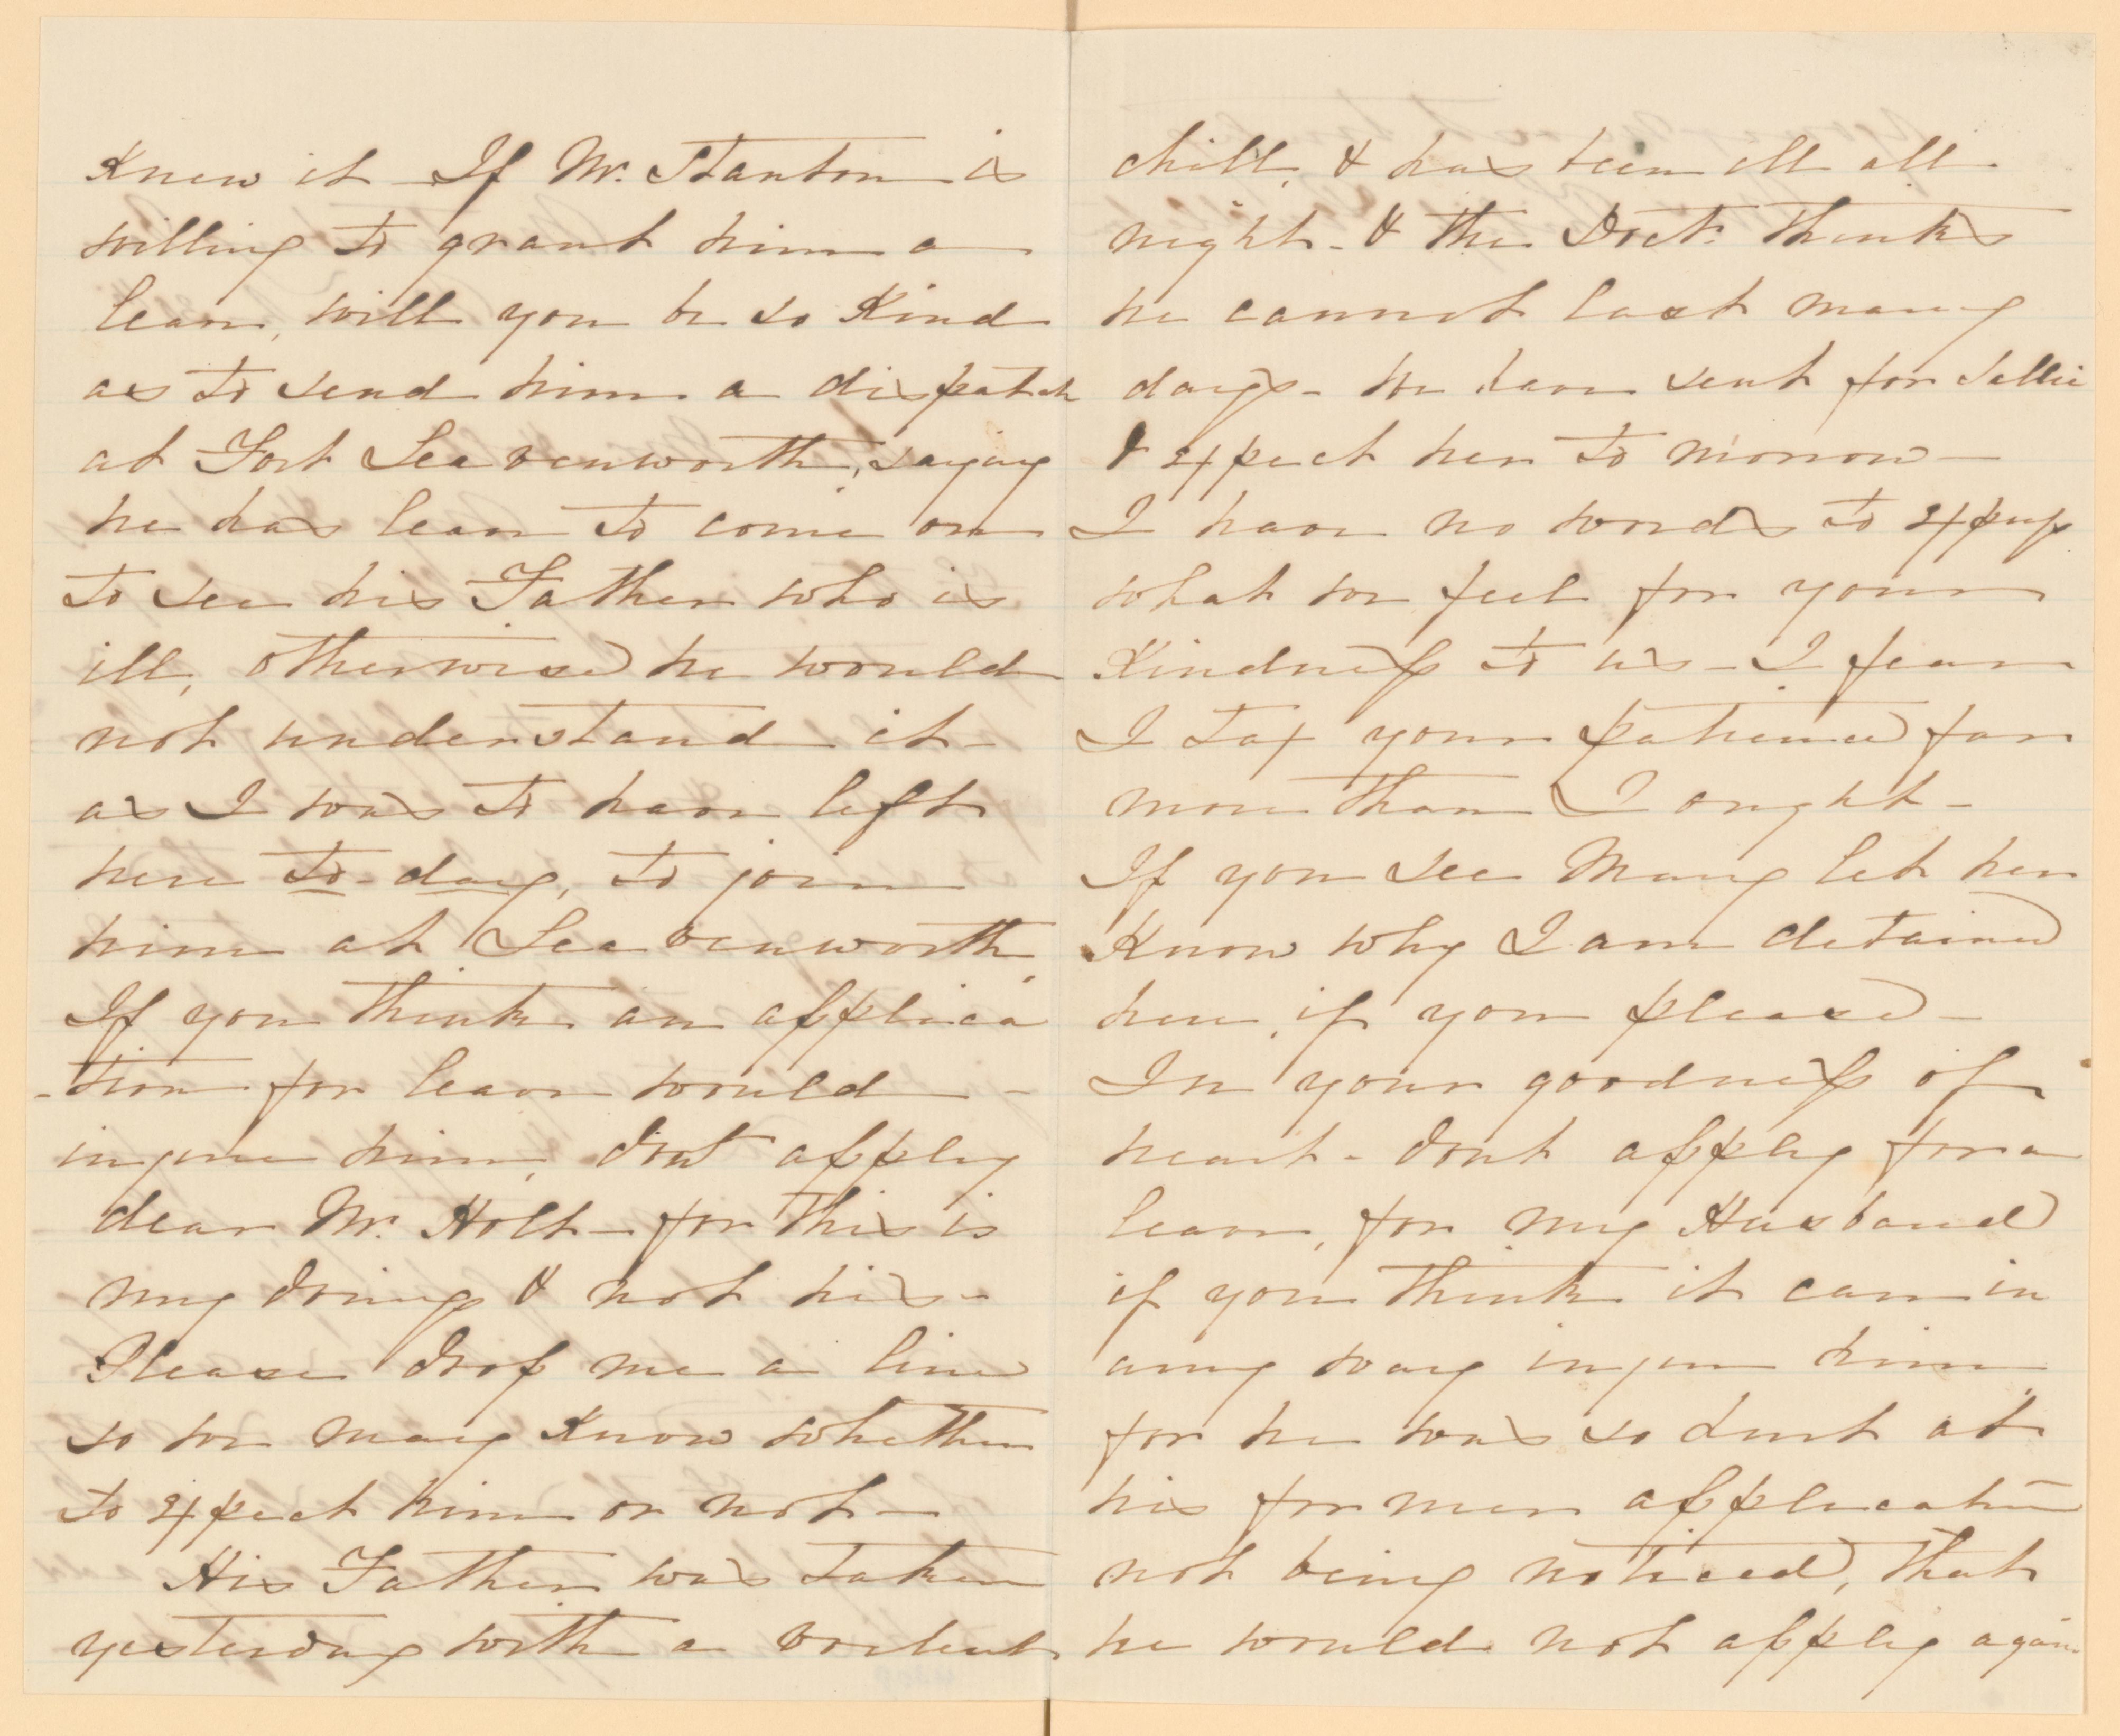 Knew it – If Mr. Stanton is
willing to grant him a
leave, will you be so Kind
as to send him a dispatch
at Fort Leavenworth, saying
he has leave to come on
to see his Father who is
ill, otherwise he would
not understand it –
as I was to have left
here to-day, to join
him at Leavenworth.
If you think an applica
-tion for leave would –
injure him, dont apply
dear Mr. Holt – for this is
my doing & not his –
Please drop me a line
so we may Know whether
to expect him or not –
His Father was taken
yesterday with a violent
chill, & has been ill all
night – & the Doctr. thinks
he cannot last many
days – We have sent for Sallie
& expect her to morrow –
I have no words to express
what we feel for your
Kindness to us – I fear
I tax your patience far
more than I ought –
If you see Mary let her
Know why I am detained
here, if you please –
In your goodness of
heart – dont apply for a
leave, for my Husband
if you think it can in
any way injure him
for he was so hurt at
his former application
not being noticed, that
he would not apply again